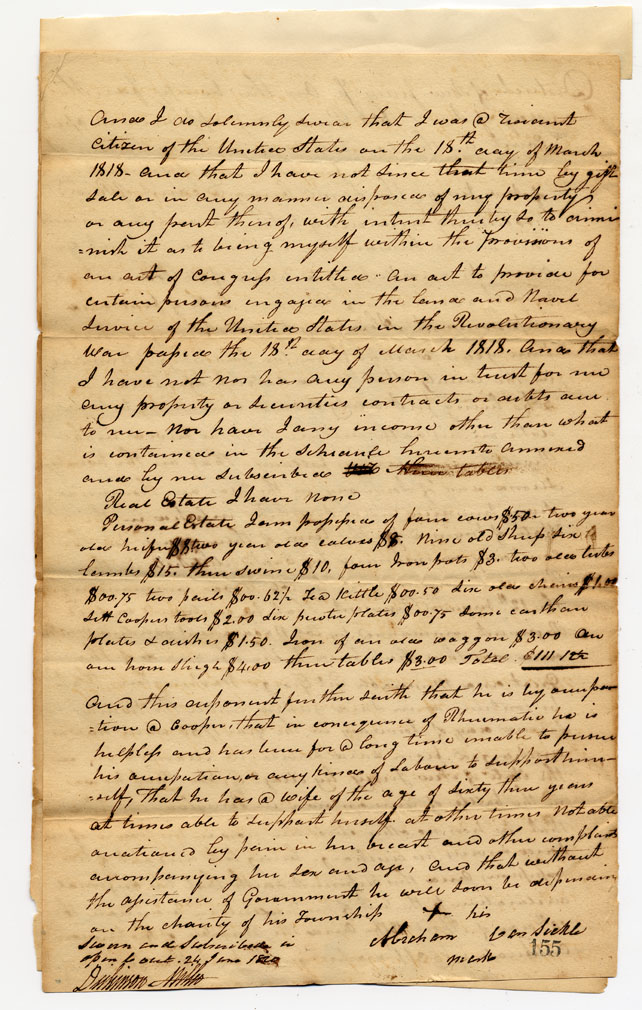 And I do solemnly swear that I was a resident
Citizen of the United States on the 18th day of March
1818 - and that I have not since that time by gift
sale or in any manner disposed of my property
or any part thereof, with intent thereby so to dimi
=nish it as to bring myself within the Provisions of
an act of Congress intitled "An act to provide for
certain persons engaged in the land and Naval
service of the United States in the Revolutionary
War passed the 18th day of March 1818. And that
I have not nor has any person in trust for me
any property or securities contracts or debts due
to me - Nor have I any income other than what
is contained in the schedule hereunto annexed
and by me subscribed
Real Estate I have None
Personal Estate I am possessed of four cows $50. two year
old heifer $8 two year old calves $8. Nine old Sheep six
lambs $15. three swine $10, four Iron pots $3. two old tubs
$00.75 two pails $00.62½ Tea Kittle $00.50 six old chairs $1.00
Sett Coopers tools $2.00 six pewter plates $00.75 some earthan
plates & dishes $1.50. Iron of an old waggon $3.00 An
one horse sleigh $4.00 three tables $3.00 Total $111 12½
And this deponent further saith that he is by occupa
=tion a Cooper, that in consequence of Rheumatic he is
helpless and has been for a long time unable to pursue
his occupation, or any kind of Labour to support him-
=self, that he has a wife of the age of Sixty three years
at times able to support herself at other times Not able
occationed by pain in her breast and other complaints
accompanying her sex and age, and that without
the assistance of Government he will soon be dependin
on the charity of his Township + his
Sworn and subscribed in Abraham Van Sickle
open Court 24 June mark 155
Dickinson Miller